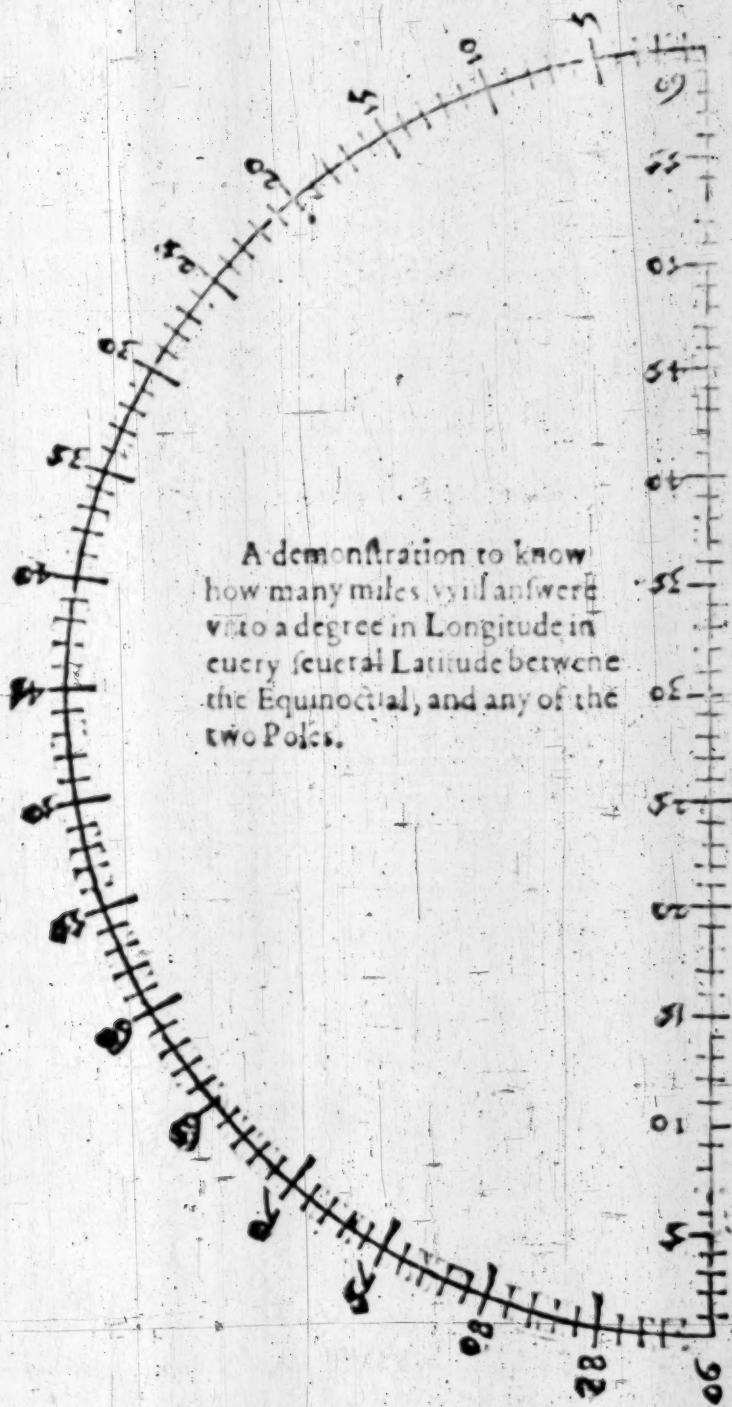 5
10
15
20
25
30
35
40
45
50
55
60
65
70
75
80
85
90
60
55
50
45
40
35
30
25
20
15
10
5
A demonſtration to know
how many miles vvill anſwere
vnto a degree in Longitude in
euery ſeueral Latitude betwene
the Equinoctial, and any of the
two Poles.